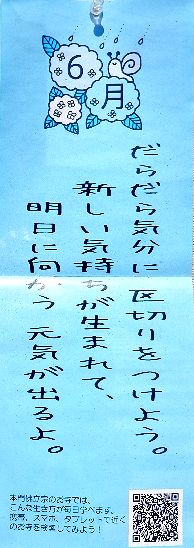 6月
だらだら気分に区切りをつけよう。
新しい気持ちが生まれて、
明日に向かう元気が出るよ。
本門佛立宗のお寺では、
こんな生き方が毎日学べます。
携帯、スマホ、タブレットで近く
のお寺を検索してみよう！